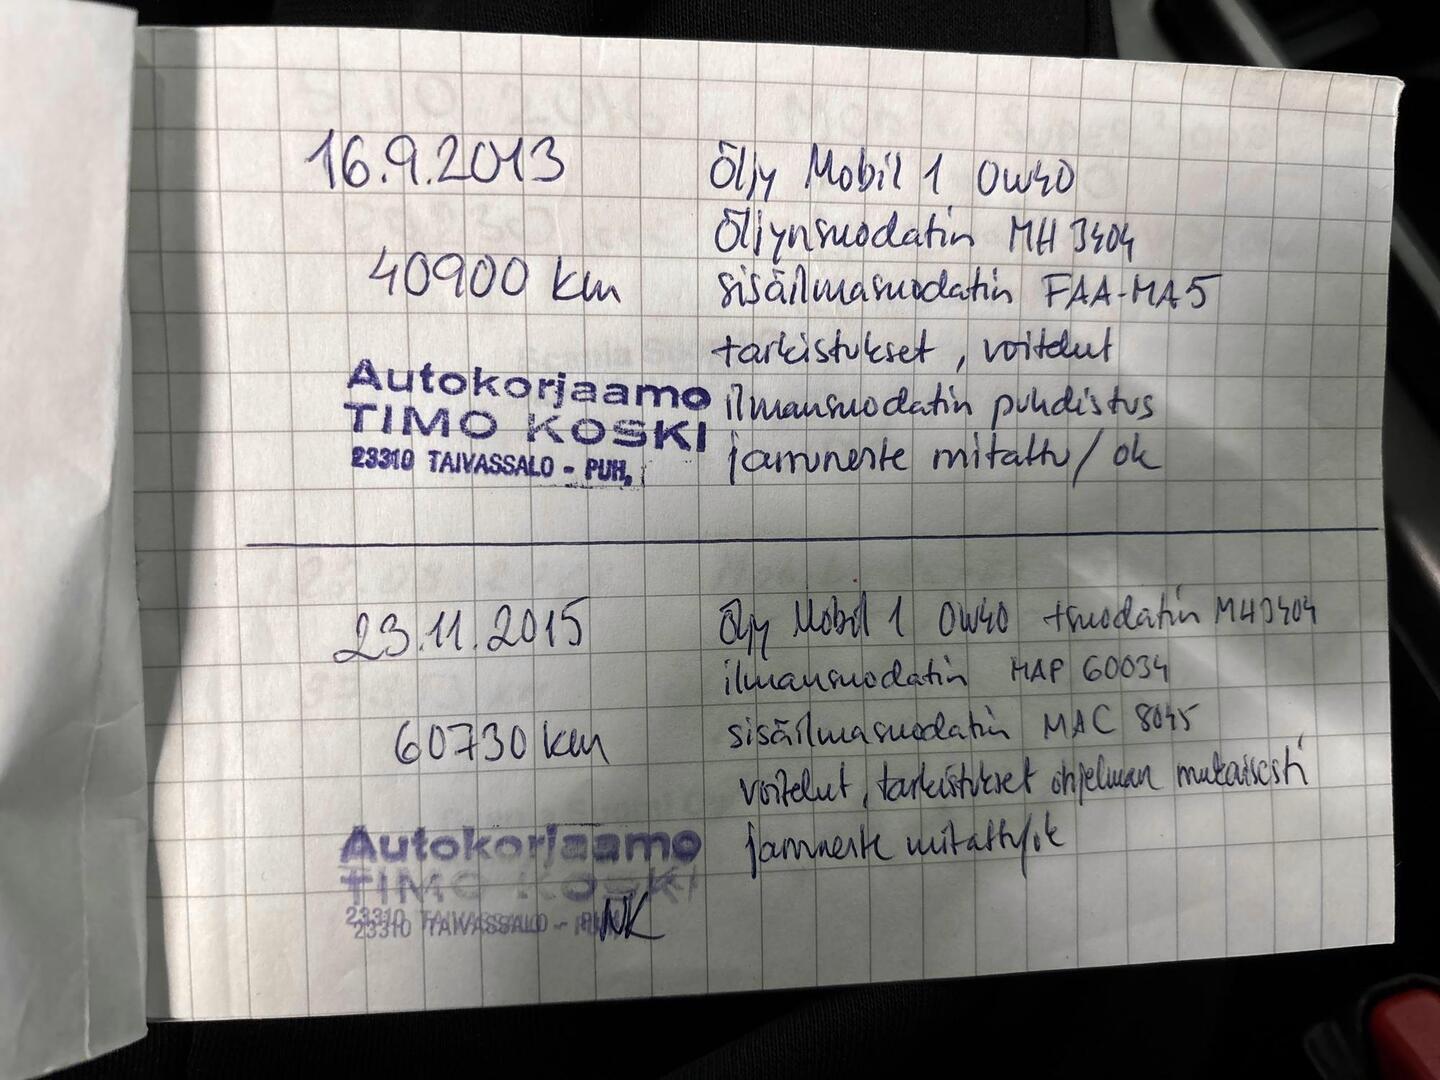 16.9.2013
40900 km
Autokorjaamo
TIMO KOSKI
23310 TAIVASSALO - PUH.
Öljy Mobil 1 0W40
Öljynsuodatin MH 3404
sisäilmasuodatin FAA-MA5
tarkistukset, voitelut
ilmansuodatin puhdistus
jarruneste mitattu / ok
23.11.2015
60730 km
Autokorjaamo
TIMO KOSKI
23310 TAIVASSALO - PUH.
NK
Öljy Mobil 1 0W40 +suodatin MH3404
ilmansuodatin MAP 60034
sisäilmasuodatin MAC 8045
voitelut, tarkistukset ohjelman mukaisesti
jarruneste mitattu/ok